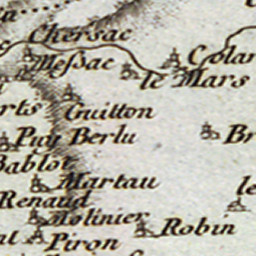 Chersac
Messac
Colar
le Mars
Guitton
Puy Berlu
Br
Bablot
Martau
le
Renaud
Molinier
Robin
Piron